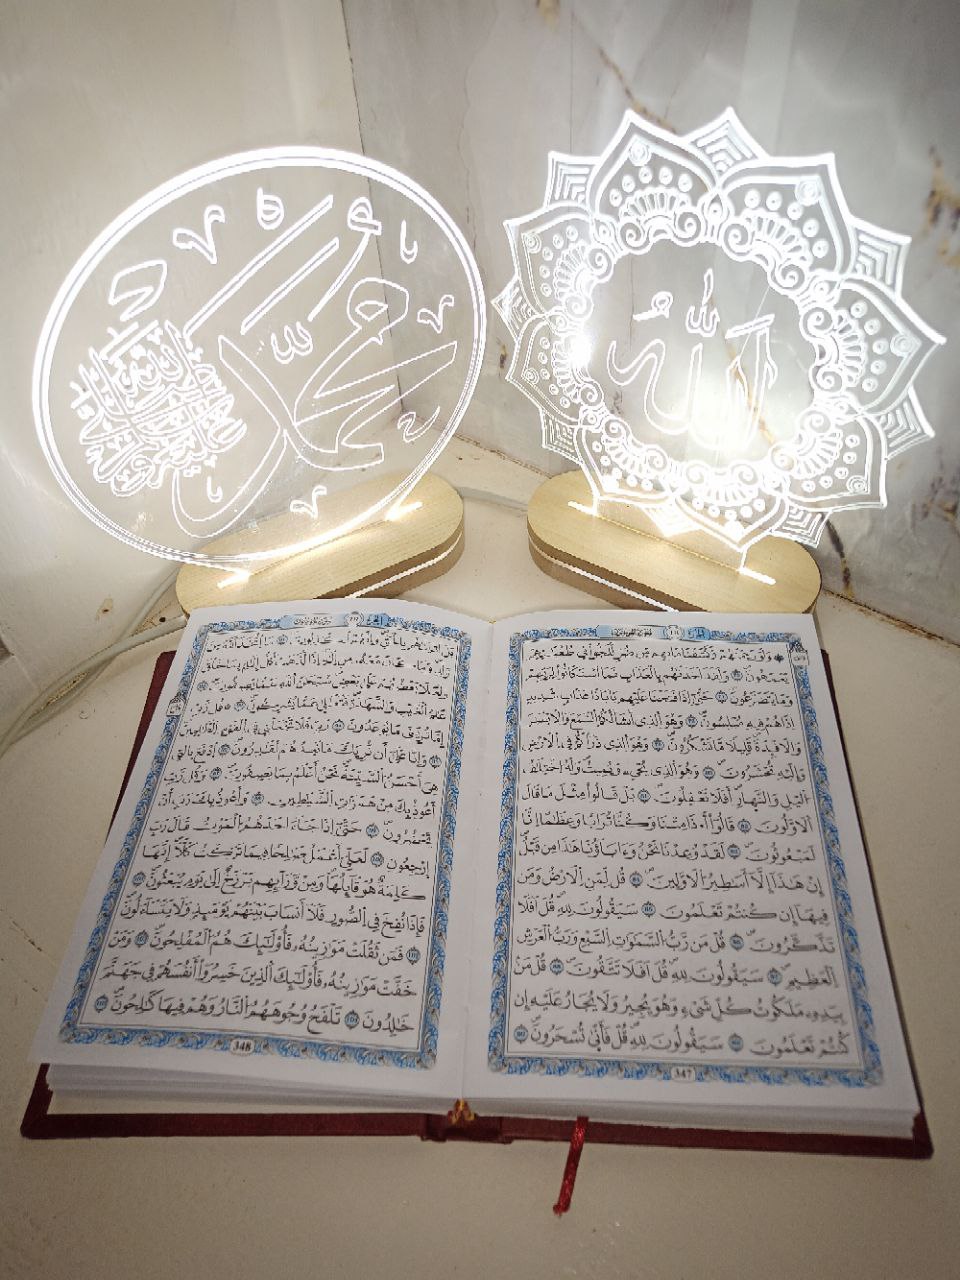 محمد
الله
۞ وَلَوْ رَحِمْنَٰهُمْ وَكَشَفْنَا مَا بِهِم مِّن ضُرٍّ لَّلَجُّوا۟ فِى طُغْيَٰنِهِمْ
يَعْمَهُونَ ٧٥ وَلَقَدْ أَخَذْنَٰهُم بِٱلْعَذَابِ فَمَا ٱسْتَكَانُوا۟ لِرَبِّهِمْ
وَمَا يَتَضَرَّعُونَ ٧٦ حَتَّىٰٓ إِذَا فَتَحْنَا عَلَيْهِم بَابًا ذَا عَذَابٍ شَدِيدٍ
إِذَا هُمْ فِيهِ مُبْلِسُونَ ٧٧ وَهُوَ ٱلَّذِىٓ أَنشَأَ لَكُمُ ٱلسَّمْعَ وَٱلْأَبْصَٰرَ
وَٱلْأَفْـِٔدَةَ قَلِيلًا مَّا تَشْكُرُونَ ٧٨ وَهُوَ ٱلَّذِى ذَرَأَكُمْ فِى ٱلْأَرْضِ
وَإِلَيْهِ تُحْشَرُونَ ٧٩ وَهُوَ ٱلَّذِى يُحْىِۦ وَيُمِيتُ وَلَهُ ٱخْتِلَٰفُ
ٱلَّيْلِ وَٱلنَّهَارِ أَفَلَا تَعْقِلُونَ ٨٠ بَلْ قَالُوا۟ مِثْلَ مَا قَالَ
ٱلْأَوَّلُونَ ٨١ قَالُوٓا۟ أَءِذَا مِتْنَا وَكُنَّا تُرَابًا وَعِظَٰمًا أَءِنَّا
لَمَبْعُوثُونَ ٨٢ لَقَدْ وُعِدْنَا نَحْنُ وَءَابَآؤُنَا هَٰذَا مِن قَبْلُ
إِنْ هَٰذَآ إِلَّآ أَسَٰطِيرُ ٱلْأَوَّلِينَ ٨٣ قُل لِّمَنِ ٱلْأَرْضُ وَمَن
فِيهَآ إِن كُنتُمْ تَعْلَمُونَ ٨٤ سَيَقُولُونَ لِلَّهِ قُلْ أَفَلَا
تَذَكَّرُونَ ٨٥ قُلْ مَن رَّبُّ ٱلسَّمَٰوَٰتِ ٱلسَّبْعِ وَرَبُّ ٱلْعَرْشِ
ٱلْعَظِيمِ ٨٦ سَيَقُولُونَ لِلَّهِ قُلْ أَفَلَا تَتَّقُونَ ٨٧ قُلْ مَنۢ
بِيَدِهِۦ مَلَكُوتُ كُلِّ شَىْءٍ وَهُوَ يُجِيرُ وَلَا يُجَارُ عَلَيْهِ إِن
كُنتُمْ تَعْلَمُونَ ٨٨ سَيَقُولُونَ لِلَّهِ قُلْ فَأَنَّىٰ تُسْحَرُونَ ٨٩
347
بَلْ أَتَيْنَٰهُم بِٱلْحَقِّ وَإِنَّهُمْ لَكَٰذِبُونَ ٩٠ مَا ٱتَّخَذَ ٱللَّهُ مِن
وَلَدٍ وَمَا كَانَ مَعَهُۥ مِنْ إِلَٰهٍ إِذًا لَّذَهَبَ كُلُّ إِلَٰهٍۭ بِمَا خَلَقَ
وَلَعَلَا بَعْضُهُمْ عَلَىٰ بَعْضٍ سُبْحَٰنَ ٱللَّهِ عَمَّا يَصِفُونَ ٩١
عَٰلِمِ ٱلْغَيْبِ وَٱلشَّهَٰدَةِ فَتَعَٰلَىٰ عَمَّا يُشْرِكُونَ ٩٢ قُل رَّبِّ
إِمَّا تُرِيَنِّى مَا يُوعَدُونَ ٩٣ رَبِّ فَلَا تَجْعَلْنِى فِى ٱلْقَوْمِ ٱلظَّٰلِمِينَ
٩٤ وَإِنَّا عَلَىٰٓ أَن نُّرِيَكَ مَا نَعِدُهُمْ لَقَٰدِرُونَ ٩٥ ٱدْفَعْ بِٱلَّتِى
هِىَ أَحْسَنُ ٱلسَّيِّئَةَ نَحْنُ أَعْلَمُ بِمَا يَصِفُونَ ٩٦ وَقُل رَّبِّ
أَعُوذُ بِكَ مِنْ هَمَزَٰتِ ٱلشَّيَٰطِينِ ٩٧ وَأَعُوذُ بِكَ رَبِّ أَن
يَحْضُرُونِ ٩٨ حَتَّىٰٓ إِذَا جَآءَ أَحَدَهُمُ ٱلْمَوْتُ قَالَ رَبِّ
ٱرْجِعُونِ ٩٩ لَعَلِّىٓ أَعْمَلُ صَٰلِحًا فِيمَا تَرَكْتُ كَلَّآ إِنَّهَا
كَلِمَةٌ هُوَ قَآئِلُهَا وَمِن وَرَآئِهِم بَرْزَخٌ إِلَىٰ يَوْمِ يُبْعَثُونَ ١٠٠
فَإِذَا نُفِخَ فِى ٱلصُّورِ فَلَآ أَنسَابَ بَيْنَهُمْ يَوْمَئِذٍ وَلَا يَتَسَآءَلُونَ
١٠١ فَمَن ثَقُلَتْ مَوَٰزِينُهُۥ فَأُو۟لَٰٓئِكَ هُمُ ٱلْمُفْلِحُونَ ١٠٢ وَمَنْ
خَفَّتْ مَوَٰزِينُهُۥ فَأُو۟لَٰٓئِكَ ٱلَّذِينَ خَسِرُوٓا۟ أَنفُسَهُمْ فِى جَهَنَّمَ
خَٰلِدُونَ ١٠٣ تَلْفَحُ وُجُوهَهُمُ ٱلنَّارُ وَهُمْ فِيهَا كَٰلِحُونَ ١٠٤
348